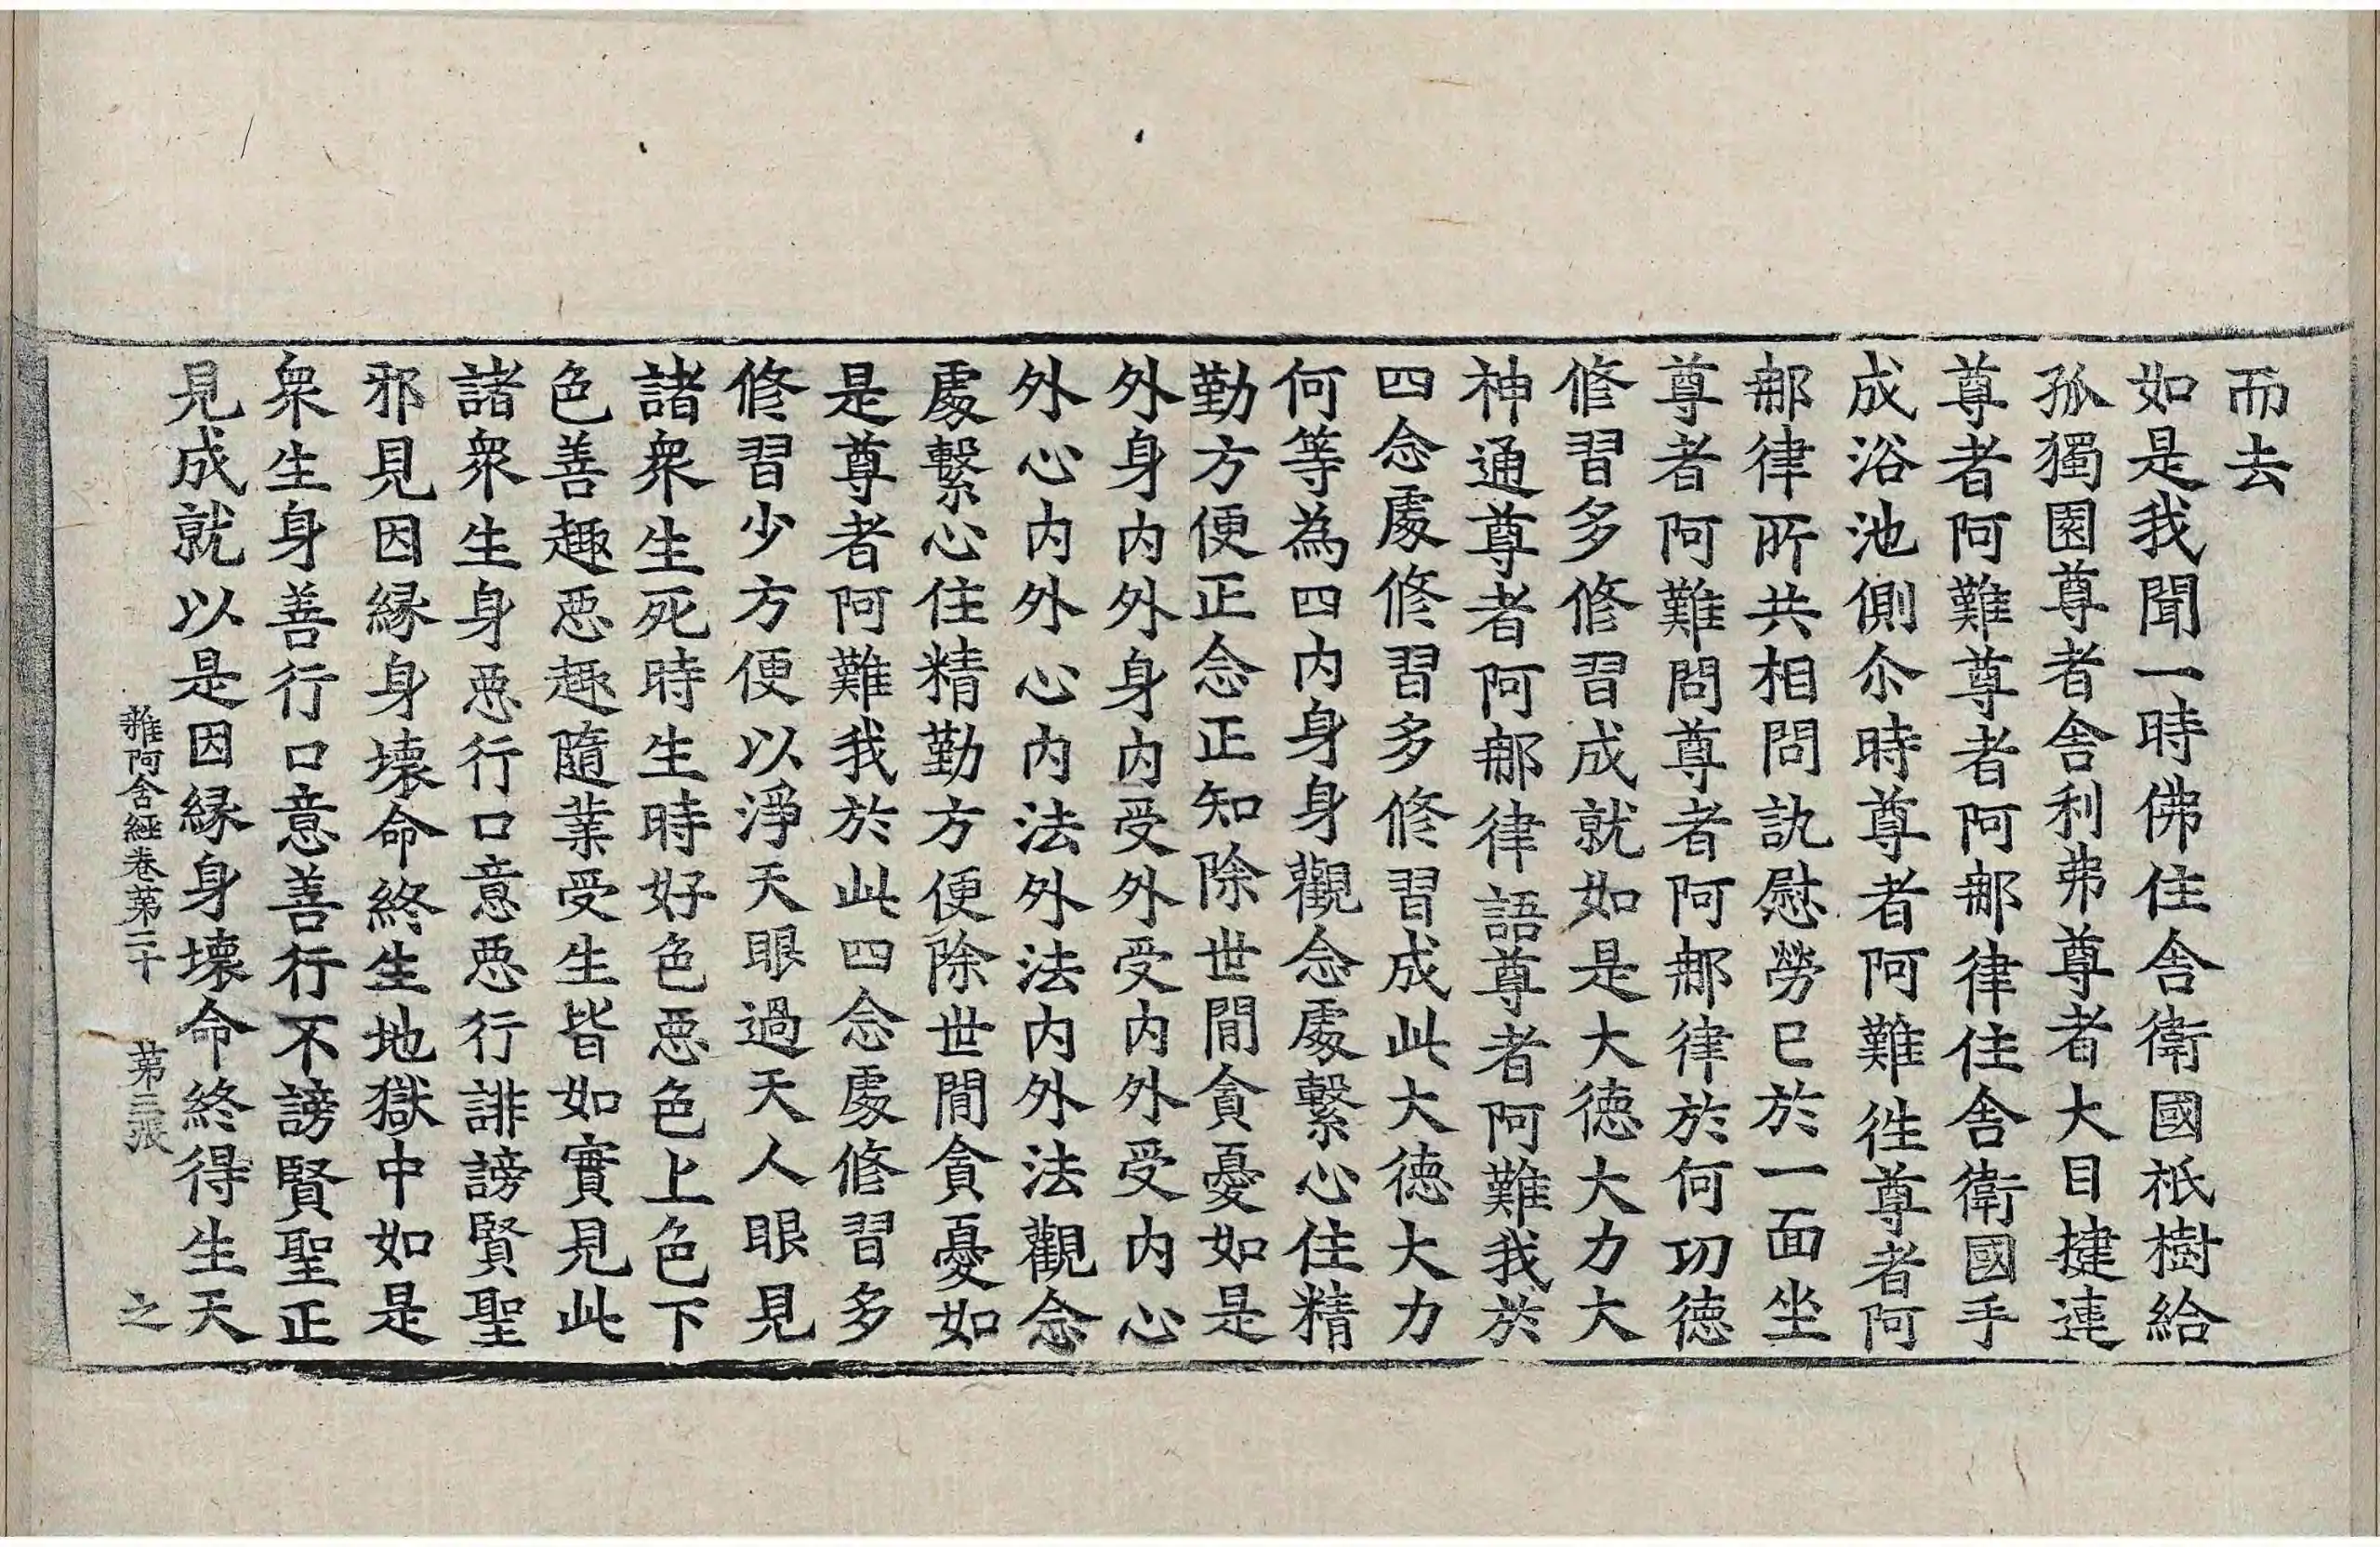 而去
如是我聞一時佛住舎衛國祇樹給
孤獨園尊者舎利弗尊者大目揵連
尊者阿難尊者阿那律住舎衛國手
成浴池側尒時尊者阿難徃尊者阿
那律所共相問訊慰勞已於一面坐
尊者阿難問尊者阿那律於何功徳
修習多修習成就如是大徳大力大
神通尊者阿那律語尊者阿難我於
四念處修習多修習成此大徳大力
何等為四内身身觀念處繫心住精
勤方便正念正知除世間貪憂如是
外身内外身内受外受内外受内心
外心内外心内法外法内外法觀念
處繫心住精勤方便除世間貪憂如
是尊者阿難我於此四念處修習多
修習少方便以淨天眼過天人眼見
諸衆生死時生時好色惡色上色下
色善趣惡趣隨業受生皆如實見此
諸衆生身惡行口意惡行誹謗賢聖
邪見因縁身壞命終生地獄中如是
衆生身善行口意善行不謗賢聖正
見成就以是因縁身壞命終得生天
雜阿含經卷苐二十 苐三張 之